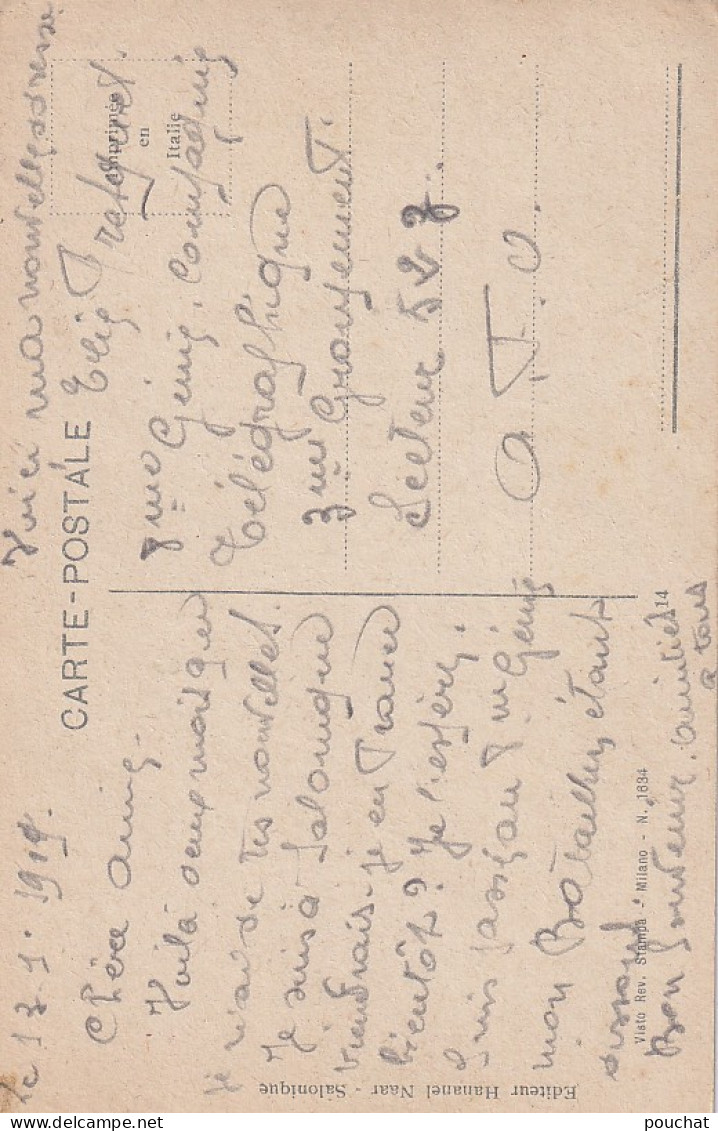 Voici ma nouvelle adresse
CARTE-POSTALE
Imprimée
en
Italie
Le 13.1.1919.
Chère amie.
Voilà deux mois que
je n'ai de tes nouvelles.
Je suis à Salonique
viendrais-je en France
bientôt? Je l'espère.
Suis passé au 8me Génie
mon Bataillon étant
dissout
Bon souvenir. amitiés
à tous
Elie
8me Génie. Compagnie
Télégraphique
3me Groupement.
Secteur 527.
A. O
Visto Rev. Stampa - Milano - N. 1634
14
Editeur Hananel Naar - Salonique
pouchat